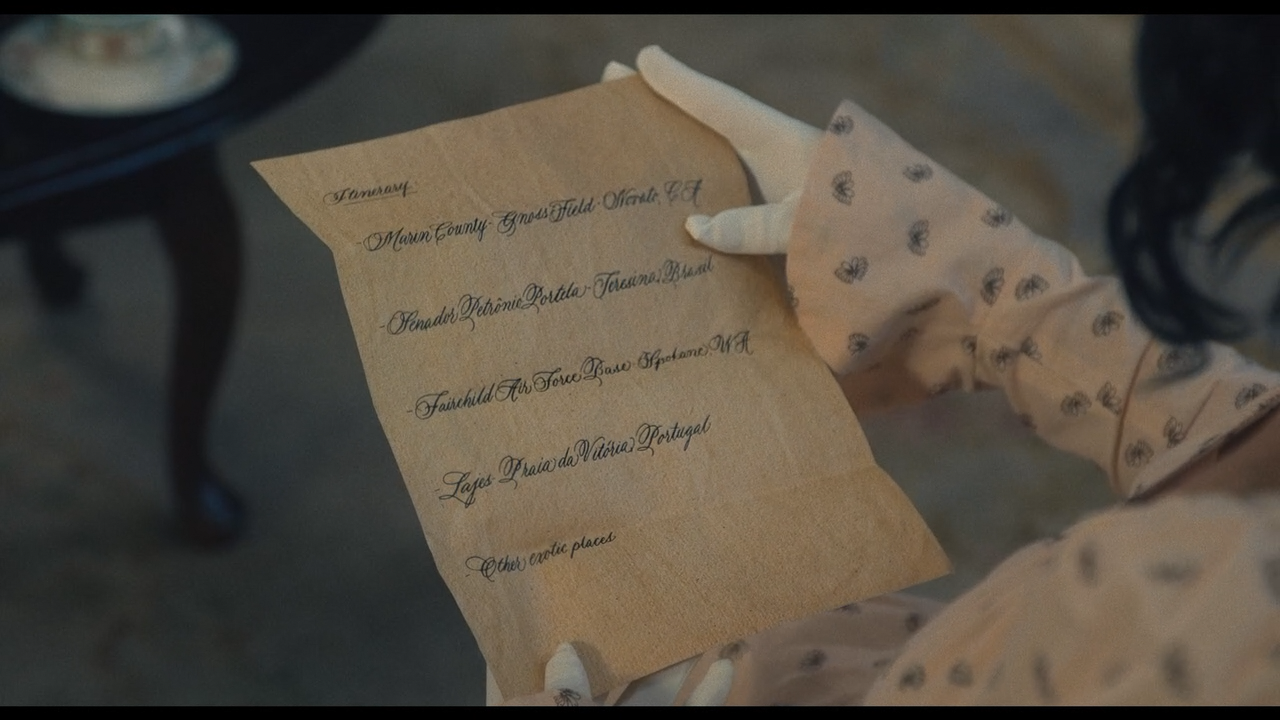 Itinerary
- Marin County - Gnoss Field - Novato, CA
- Senador Petrônio Portela - Teresina, Brasil
- Fairchild Air Force Base - Spokane, WA
- Lajes - Praia da Vitória, Portugal
- Other exotic places